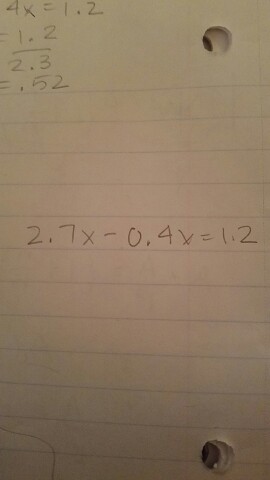 4x = 1.2
= 1.2
2.3
= .52
2.7x - 0.4x = 1.2